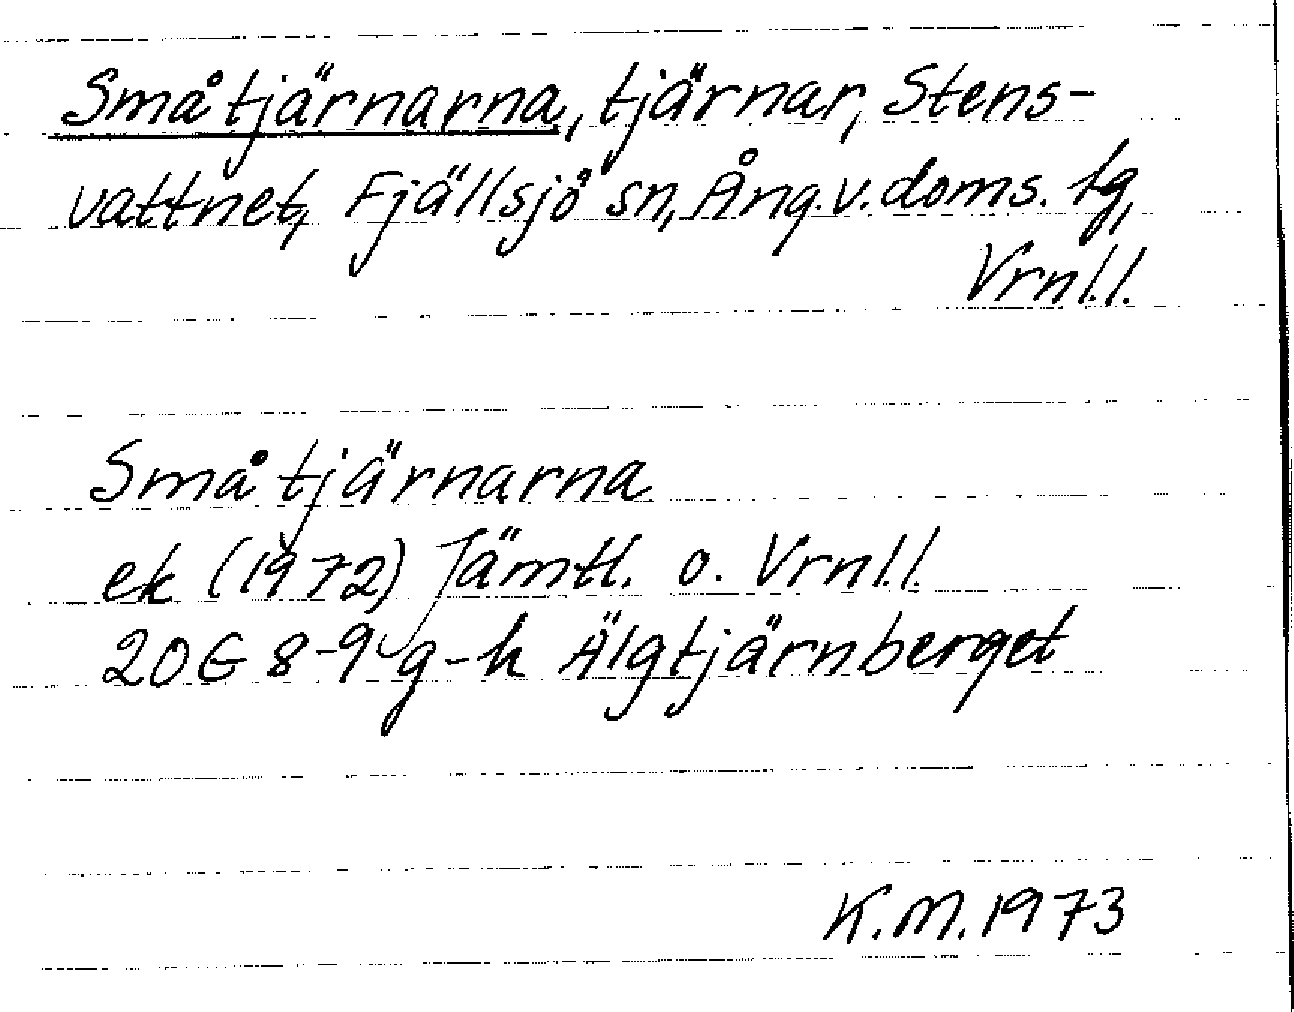 Småtjärnarna, tjärnar, Stens-
vattnet, Fjällsjö sn, Ång.v.doms. tg,
Vrnl.l.
Småtjärnarna
ek (1972) Jämtl. o. Vrnl.l.
20G 8-9 g-h Älgtjärnberget
K.M. 1973